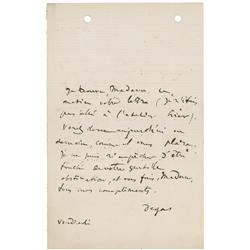 Je trouve, Madame, en
rentrant votre lettre (Je n'étais
pas allé à l'atelier hier).
Venez donc aujourd'hui ou
demain, comme il vous plaira.
Je ne puis m'empêcher d'être
touché de votre gentille
obstination, et vous fais, Madame,
tous mes compliments.
Degas
vendredi